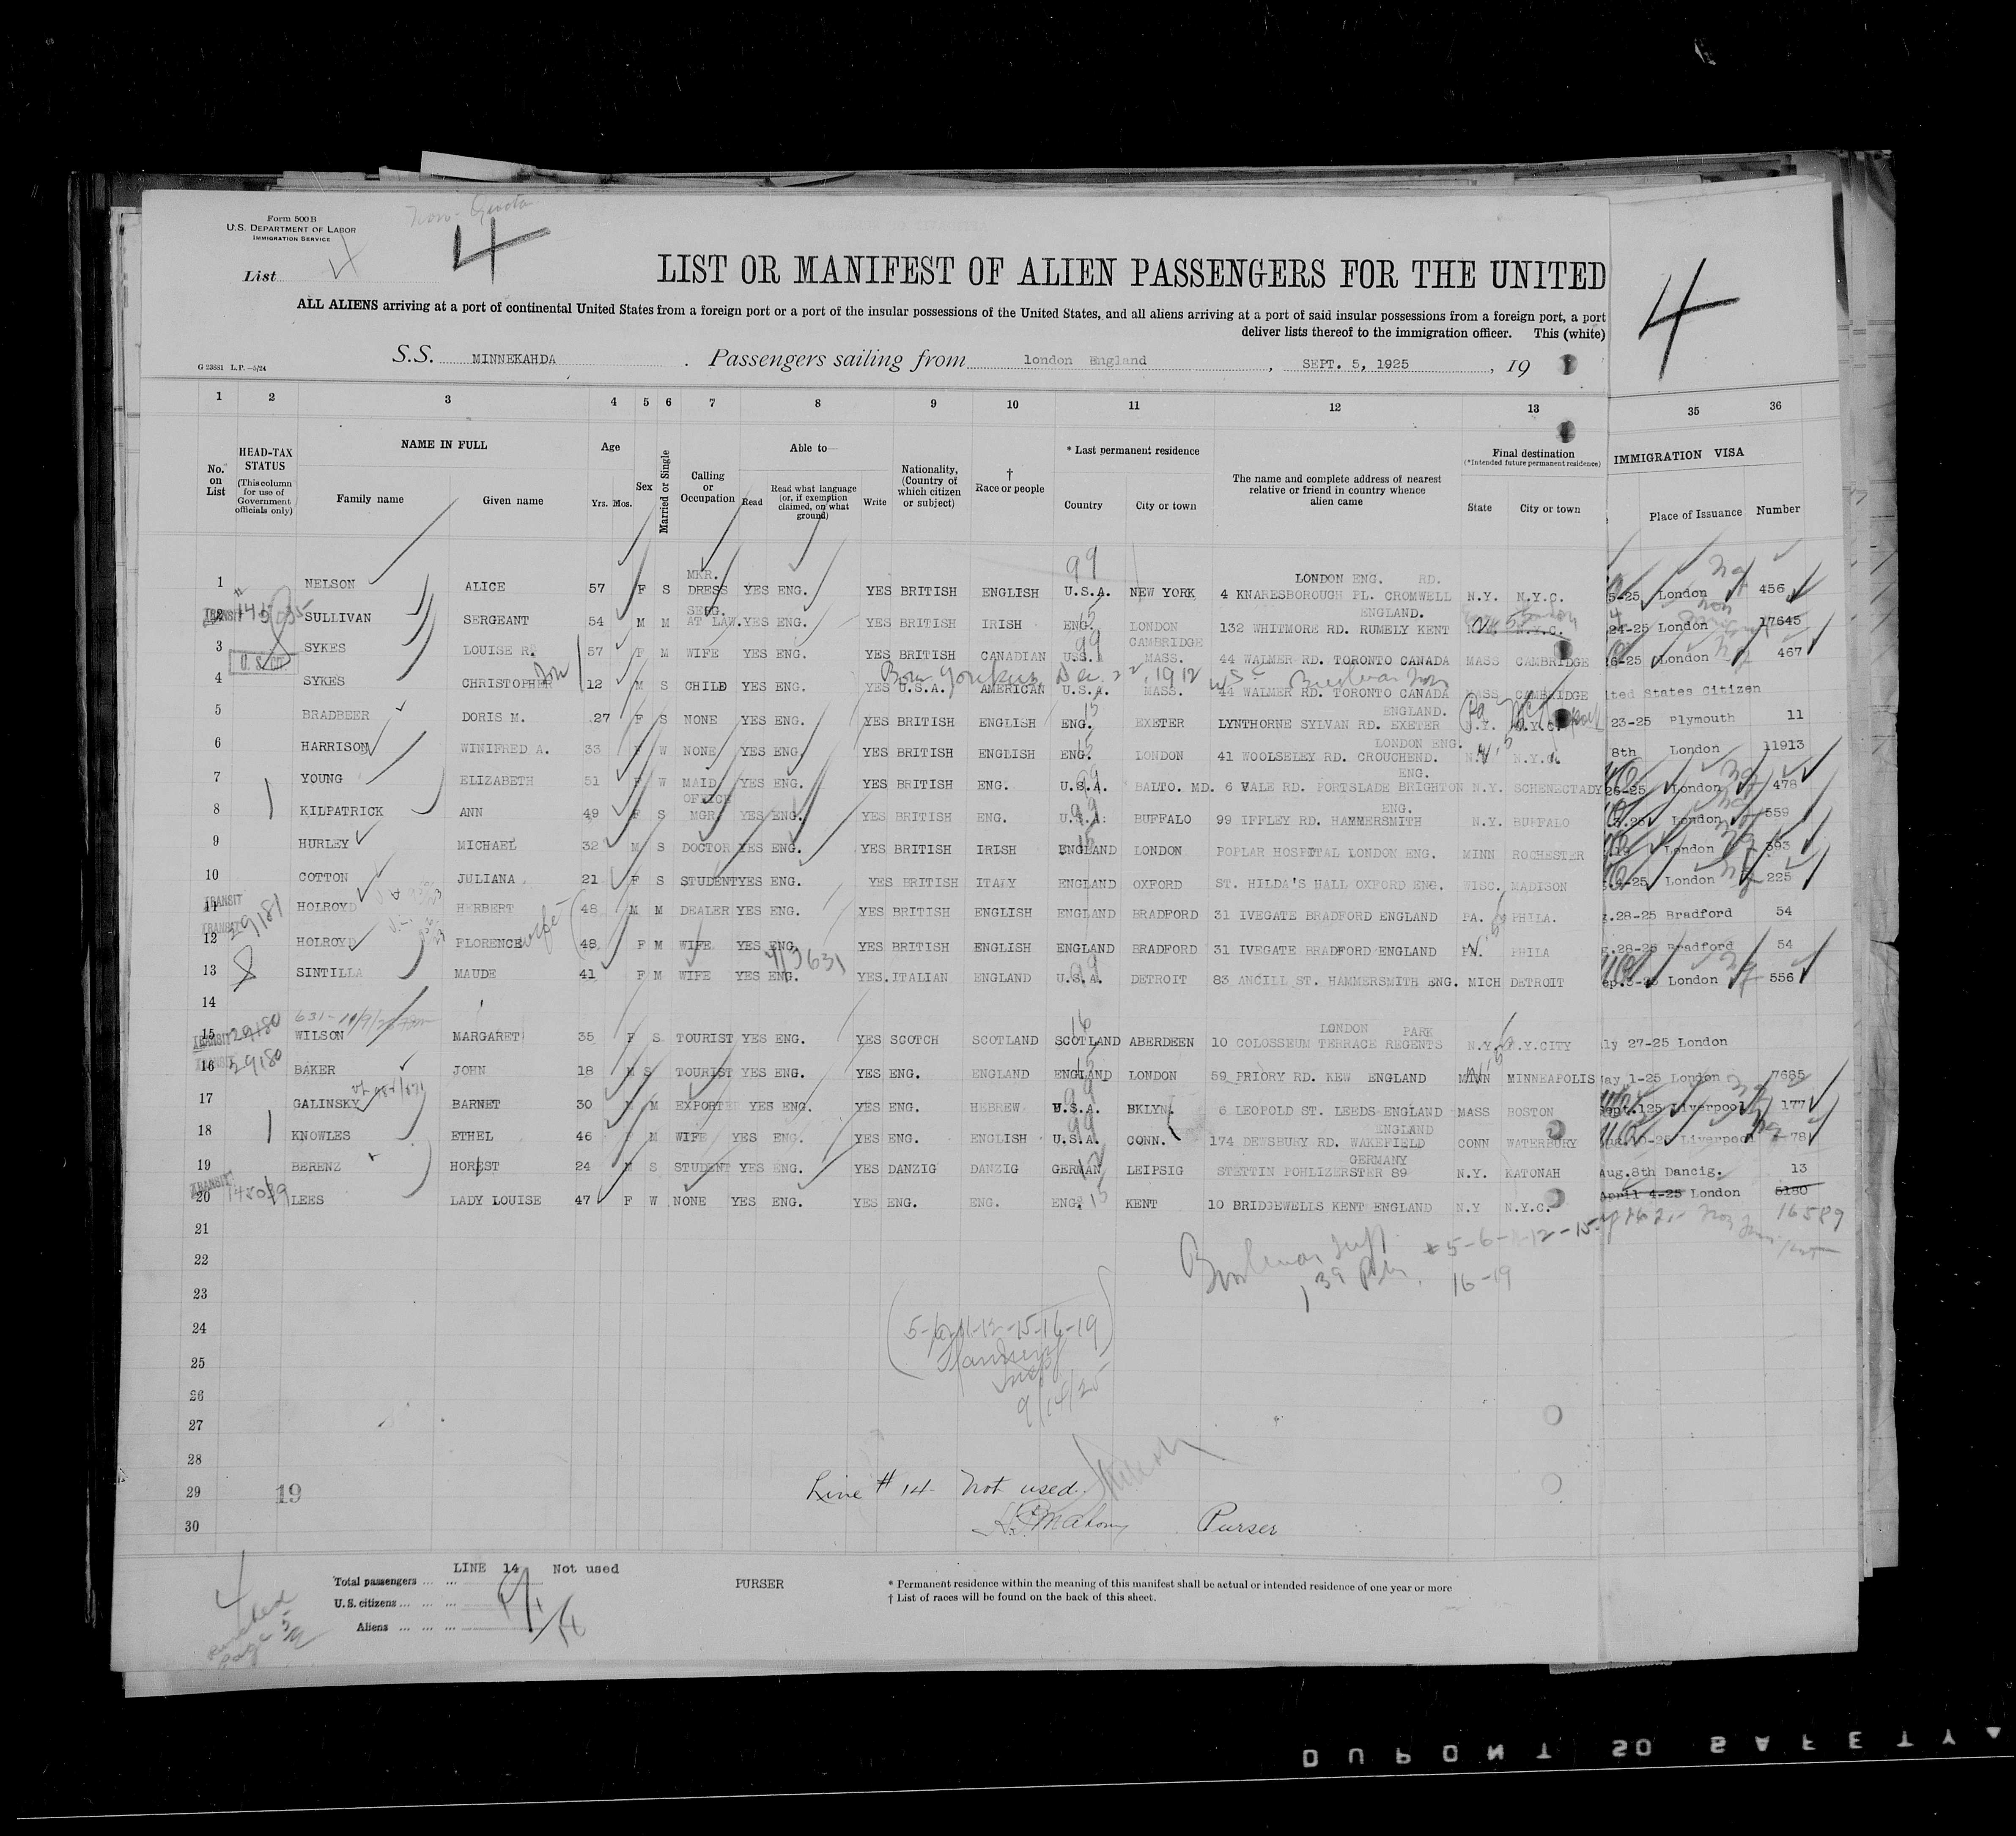 Form 500 B
U.S. DEPARTMENT OF LABOR
IMMIGRATION SERVICE
Non-Quota
List 4
4
LIST OR MANIFEST OF ALIEN PASSENGERS FOR THE UNITED
4
ALL ALIENS arriving at a port of continental United States from a foreign port or a port of the insular possessions of the United States, and all aliens arriving at a port of said insular possessions from a foreign port, a port
deliver lists thereof to the immigration officer. This (white)
S.S. MINNEKAHDA . Passengers sailing from london England , SEPT. 5, 1925 , 19
G 23881 L.P.—5/24
1 2 3 4 5 6 7 8 9 10 11 12 13 35 36
No. on List
HEAD-TAX STATUS
(This column for use of Government officials only)
NAME IN FULL
Family name Given name
Age
Yrs. Mos.
Sex
Married or Single
Calling or Occupation
Able to—
Read
Read what language (or, if exemption claimed, on what ground)
Write
Nationality, (Country of which citizen or subject)
† Race or people
* Last permanent residence
Country City or town
The name and complete address of nearest relative or friend in country whence alien came
Final destination
(*Intended future permanent residence)
State City or town
IMMIGRATION VISA
Place of Issuance Number
1 NELSON ALICE 57 F S MKR. DRESS YES ENG. YES BRITISH ENGLISH U.S.A. NEW YORK LONDON ENG. RD. 4 KNARESBOROUGH PL. CROMWELL N.Y. N.Y.C. 5-25 London 456
2 SULLIVAN SERGEANT 54 M M SERG. AT LAW. YES ENG. YES BRITISH IRISH ENG. LONDON ENGLAND. 132 WHITMORE RD. RUMELY KENT N.Y. N.Y.C. 24-25 London 17645
3 U.S. SYKES LOUISE R. 57 F M WIFE YES ENG. YES BRITISH CANADIAN U.S. CAMBRIDGE MASS. 44 WALMER RD. TORONTO CANADA MASS CAMBRIDGE 6-25 London 467
4 SYKES CHRISTOPHER 12 M S CHILD YES ENG. YES U.S.A. AMERICAN U.S.A. MASS. 44 WALMER RD. TORONTO CANADA MASS CAMBRIDGE ited States Citizen
5 BRADBEER DORIS M. 27 F S NONE YES ENG. YES BRITISH ENGLISH ENG. EXETER ENGLAND. LYNTHORNE SYLVAN RD. EXETER N.Y. N.Y.C. 23-25 Plymouth 11
6 HARRISON WINIFRED A. 33 F W NONE YES ENG. YES BRITISH ENGLISH ENG. LONDON LONDON ENG. 41 WOOLSELEY RD. CROUCHEND. N.Y. N.Y.C. 8th London 11913
7 YOUNG ELIZABETH 51 F W MAID YES ENG. YES BRITISH ENG. U.S.A. BALTO. MD. ENG. 6 VALE RD. PORTSLADE BRIGHTON N.Y. SCHENECTADY 26-25 London 478
8 KILPATRICK ANN 49 F S OFFICE MGR. YES ENG. YES BRITISH ENG. U.S.A. BUFFALO ENG. 99 IFFLEY RD. HAMMERSMITH N.Y. BUFFALO London 559
9 HURLEY MICHAEL 32 M S DOCTOR YES ENG. YES BRITISH IRISH ENGLAND LONDON POPLAR HOSPITAL LONDON ENG. MINN ROCHESTER London 393
10 COTTON JULIANA 21 F S STUDENT YES ENG. YES BRITISH ITALY ENGLAND OXFORD ST. HILDA'S HALL OXFORD ENG. WISC. MADISON London 225
11 TRANSIT HOLROYD HERBERT 48 M M DEALER YES ENG. YES BRITISH ENGLISH ENGLAND BRADFORD 31 IVEGATE BRADFORD ENGLAND PA. PHILA. .28-25 Bradford 54
12 TRANSIT 29181 HOLROYD FLORENCE wife 48 F M WIFE YES ENG. YES BRITISH ENGLISH ENGLAND BRADFORD 31 IVEGATE BRADFORD ENGLAND PHILA .28-25 Bradford 54
13 SINTILLA MAUDE 41 F M WIFE YES ENG. YES. ITALIAN ENGLAND U.S.A. DETROIT 83 ANCILL ST. HAMMERSMITH ENG. MICH DETROIT London 556
14
15 TRANSIT 29180 WILSON MARGARET 35 F S TOURIST YES ENG. YES SCOTCH SCOTLAND SCOTLAND ABERDEEN LONDON PARK 10 COLOSSEUM TERRACE REGENTS N.Y. N.Y.CITY ly 27-25 London
16 TRANSIT 29180 BAKER JOHN 18 M S TOURIST YES ENG. YES ENG. ENGLAND ENGLAND LONDON 59 PRIORY RD. KEW ENGLAND MINN MINNEAPOLIS May 1-25 London 7665
17 GALINSKY BARNET 30 M M EXPORTER YES ENG. YES ENG. HEBREW U.S.A. BKLYN. 6 LEOPOLD ST. LEEDS ENGLAND MASS BOSTON Sept.125 Liverpool 177
18 KNOWLES ETHEL 46 F M WIFE YES ENG. YES ENG. ENGLISH U.S.A. CONN. ENGLAND 174 DEWSBURY RD. WAKEFIELD CONN WATERBURY Liverpool 78
19 BERENZ HORST 24 M S STUDENT YES ENG. YES DANZIG DANZIG GERMAN LEIPSIG GERMANY STETTIN POHLIZERSTER 89 N.Y. KATONAH Aug.8th Dancig. 13
20 TRANSIT LEES LADY LOUISE 47 F W NONE YES ENG. YES ENG. ENG. ENG. KENT 10 BRIDGEWELLS KENT ENGLAND N.Y N.Y.C. April 4-25 London 5180
16589
21
22
16-19
23
24 (5-6-11-12-15-16-19)
25
26 9/14/25
27
28
29 19 Line # 14 Not used.
30 Purser
LINE 14 Not used
Total passengers
U.S. citizens
Aliens
PURSER
* Permanent residence within the meaning of this manifest shall be actual or intended residence of one year or more
† List of races will be found on the back of this sheet.
DUPONT SAFETY